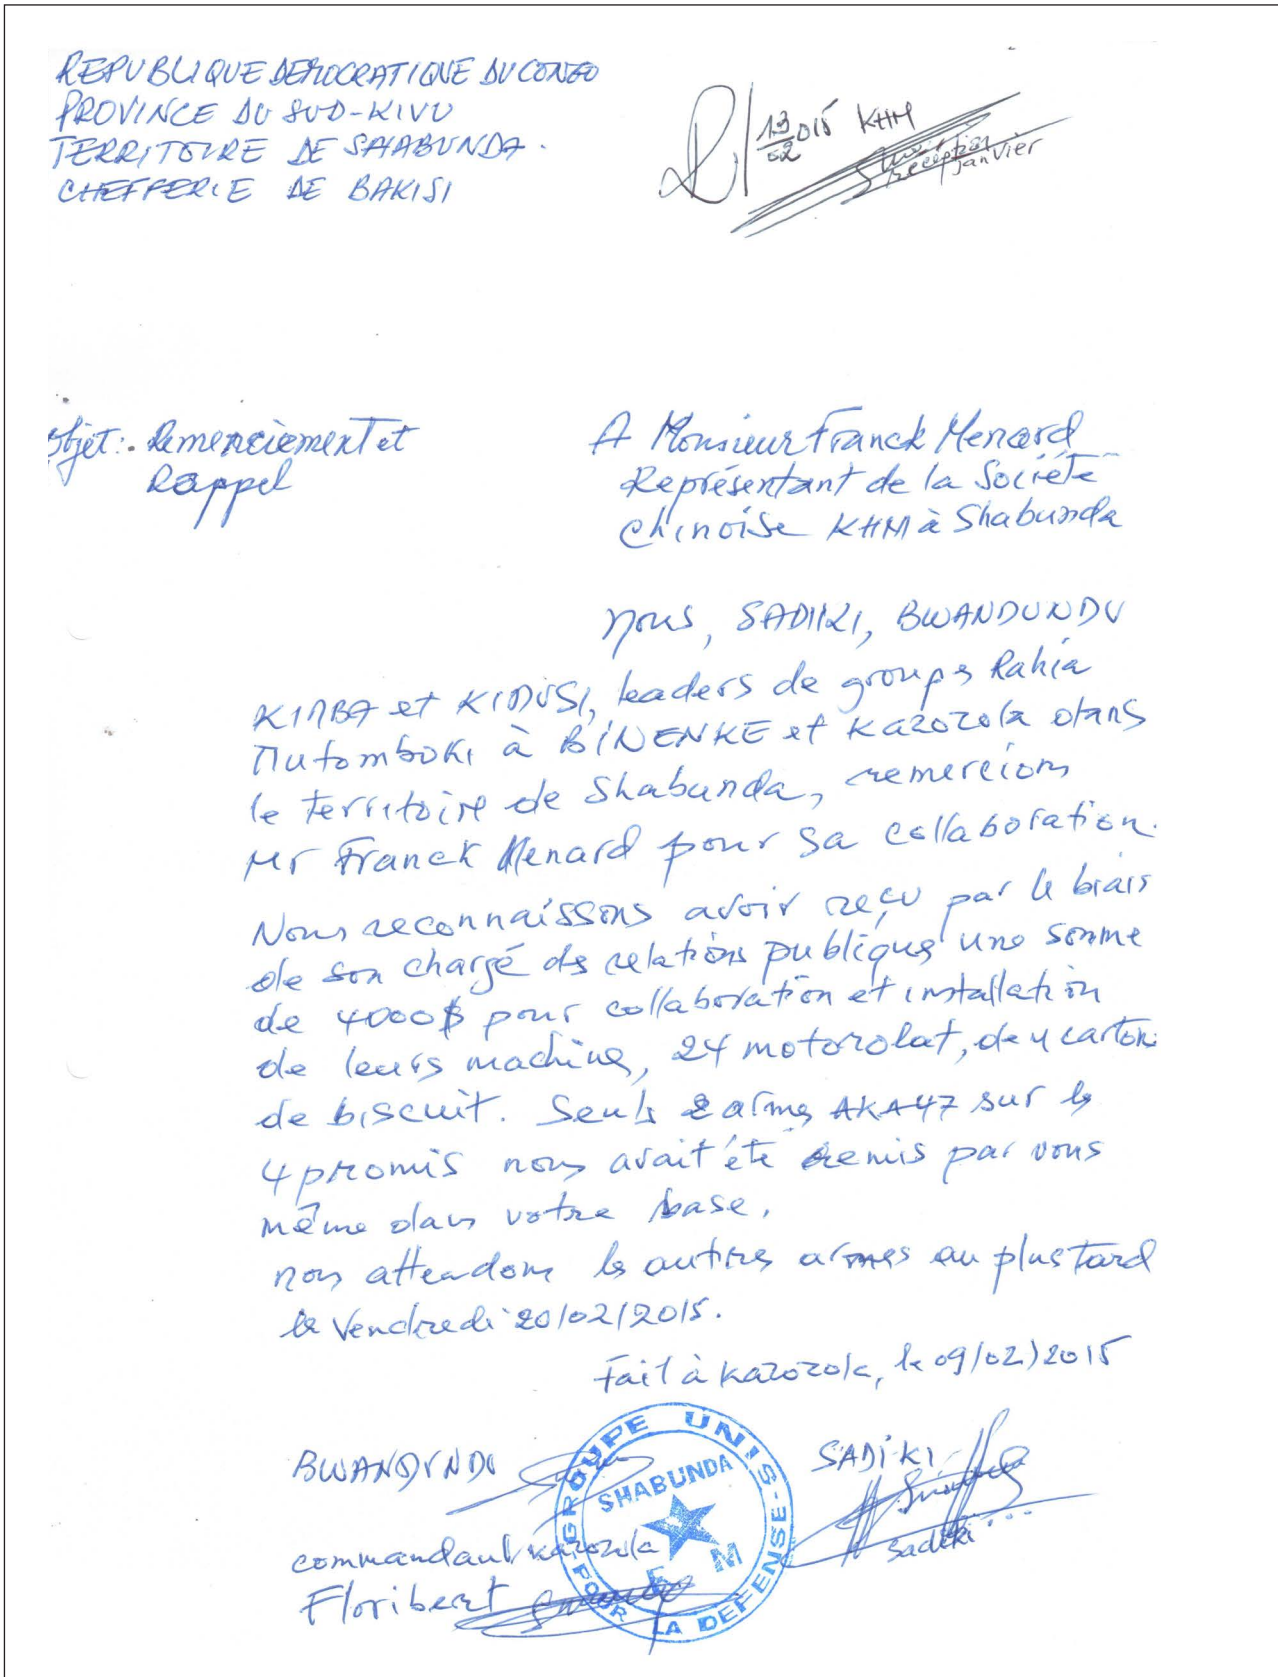 REPUBLIQUE DEMOCRATIQUE DU CONGO
PROVINCE DU SUD-KIVU
TERRITOIRE DE SHABUNDA.
CHEFFERIE DE BAKISI
13/02 015 KHM
Reception
janvier
Objet: Remerciement et
Rappel
A Monsieur Franck Menard
Représentant de la Société
Chinoise KHM à Shabunda
Nous, SADIKI, BWANDUNDU
KIMBA et KIDUSI, leaders de groupes Rahia
Mutomboki à BINENKE et Kazozola dans
le territoire de Shabunda, remercions
Mr Franck Menard pour sa collaboration.
Nous reconnaissons avoir reçu par le biais
de son chargé de relations publiques une somme
de 4000$ pour collaboration et installation
de leurs machine, 24 motorolat, de 4 carton
de biscuit. Seuls 2 armes AKA47 sur les
4 promis nous avait été remis par vous
même dans votre base,
nous attendons les autres armes au plus tard
le Vendredi 20/02/2015.
Fait à Kazozola, le 09/02/2015
BWANDUNDU
SADIKI
Sadiki
commandant kazozola
Floribert
GROUPE UNIS-
POUR LA DEFENSE
SHABUNDA
E M